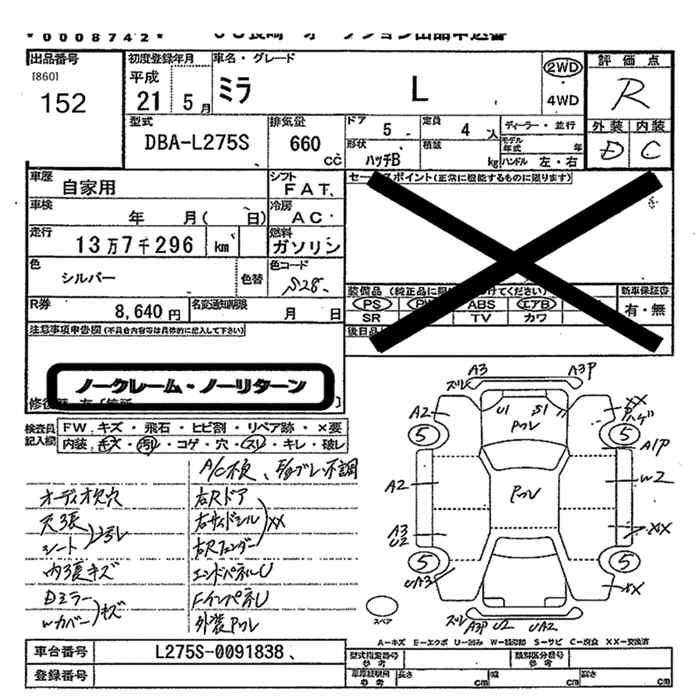 *0008742*
出品番号
[860]
152
初度登録年月
平成
21 5月
車名・グレード
ミラ L
2WD
・
4WD
評価点
R
外装 内装
D C
型式
DBA-L275S
排気量
660
cc
ドア 5
定員 4 人
ディーラー・並行
形状
ハッチB
積載 kg
モデル年式 年
ハンドル 左・右
車歴
自家用
シフト
FAT
車検
年 月( 日)
冷房
AC
走行
13万7千296 km
燃料
ガソリン
色
シルバー
色替
色コード
S28
R券
8,640円
名変通知期限
月 日
セールスポイント(正常に機能するものに限ります)
装備品
PS ABS エアB
SR TV カワ
新車保証書
有・無
注意事項申告欄(不具合内容等は具体的に記入して下さい)
ノークレーム・ノーリターン
検査員記入欄
FW.キズ・飛石・ヒビ割・リペア跡・×要
内装.キズ・汚・コゲ・穴・スリ・キレ・破レ
A/C不良、
不調
オーディオ欠穴
天張
シート
ヨゴレ
内張キズ
Dミラー
Wカバー
キズ
右Rドア
右サイドシル
右Rフェンダー
XX
エンドパネルU
FインパネU
外装Pフレ
A3
A3P
ズレ
A2
U1
S1
Pフレ
XX
ハゲ
5
5
A1P
A2
Pフレ
W2
A3
U2
XX
5
5
UA3
XX
スペア
ズレ
A3P U2 UA2
A-キズ E-エクボ U-凹み W-補修跡 S-サビ C-腐食 XX-交換済
車台番号
L275S-0091838
登録番号
型式指定番号
参考
類別区分番号
参考
車庫証明用
参考
長さ cm
幅 cm
高さ cm